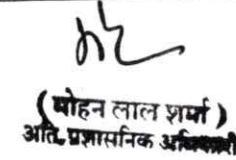 (मोहन लाल शर्मा)
अति. प्रशासनिक अधिकारी